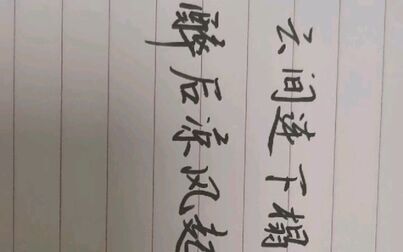 云间连下榻
醉后凉风起